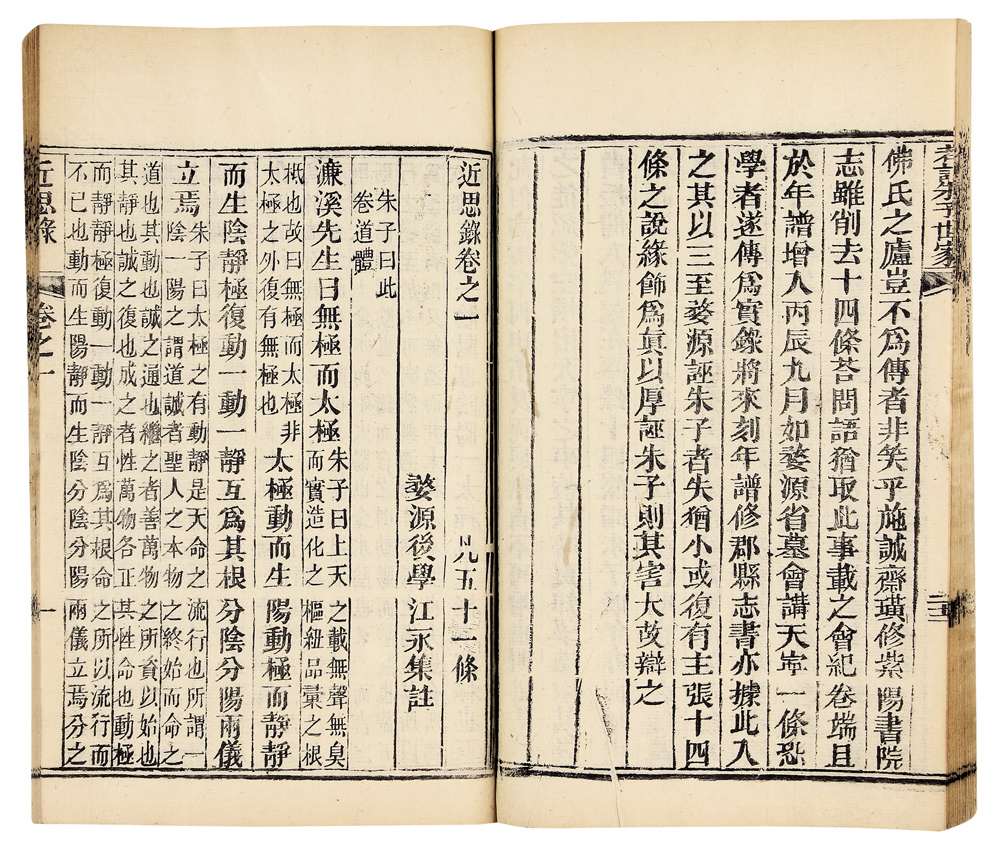 考訂朱子世家
佛氏之廬豈不爲傳者非笑乎施誠齋璜修紫陽書院
志雖削去十四條荅問語猶取此事載之會紀卷端且
於年譜增入丙辰九月如婺源省墓會講天寧一條恐
學者遂傳爲實錄將來刻年譜修郡縣志書亦據此入
之其以三至婺源誣朱子者失猶小或復有主張十四
條之說緣飾爲眞以厚誣朱子則其害大故辯之
近思錄卷之一 凡五十一條
婺源後學 江永集註
朱子曰此
卷道體
濂溪先生曰無極而太極
朱子曰上天之載無聲無臭
而實造化之樞紐品彙之根
柢也故曰無極而太極非
太極之外復有無極也
太極動而生陽動極而靜靜
而生陰靜極復動一動一靜互爲其根分陰分陽兩儀
立焉
朱子曰太極之有動靜是天命之流行也所謂一
陰一陽之謂道誠者聖人之本物之終始而命之
道也其動也誠之通也繼之者善萬物之所資以始也
其靜也誠之復也成之者性萬物各正其性命也動極
而靜靜極復動一動一靜互爲其根命之所以流行而
不已也動而生陽靜而生陰分陰分陽兩儀立焉分之
近思錄 卷之一 一